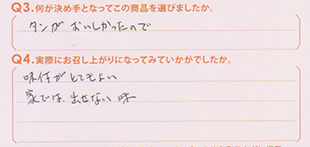 Q3.何が決め手となってこの商品を選びましたか。
タンがおいしかったので
Q4.実際にお召し上がりになってみていかがでしたか。
味付がとてもよい
家では出せない味